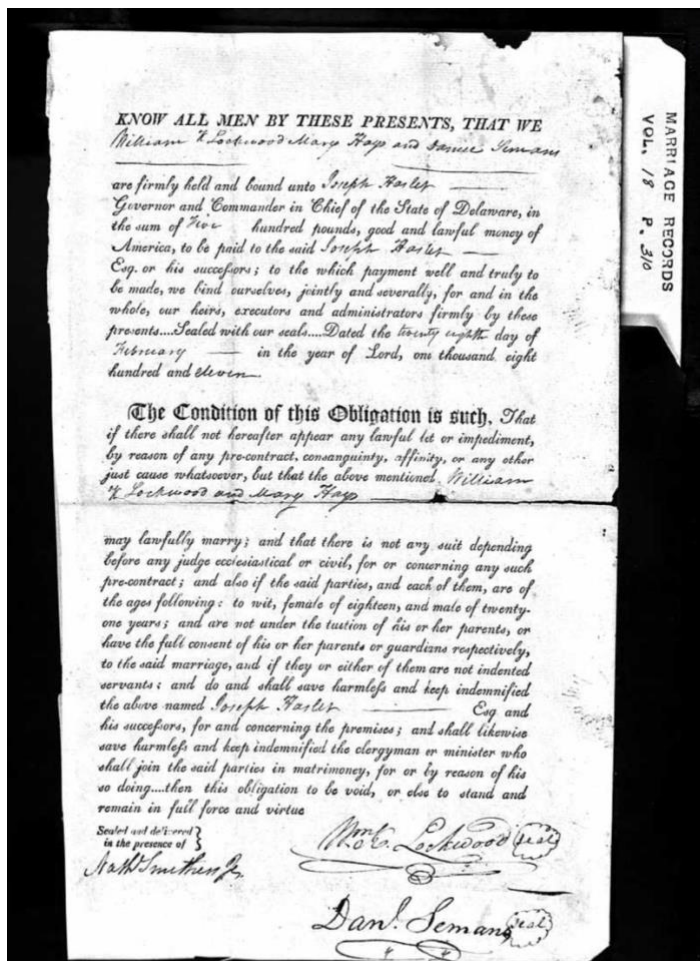 KNOW ALL MEN BY THESE PRESENTS, THAT WE
William K Lockwood Mary Hays and Daniel Semans
are firmly held and bound unto Joseph Haslet
Governor and Commander in Chief of the State of Delaware, in
the sum of Five hundred pounds, good and lawful money of
America, to be paid to the said Joseph Haslet
Esq. or his successors; to the which payment well and truly to
be made, we bind ourselves, jointly and severally, for and in the
whole, our heirs, executors and administrators firmly by these
presents....Sealed with our seals....Dated the twenty eighth day of
February in the year of Lord, one thousand eight
hundred and eleven
The Condition of this Obligation is such, That
if there shall not hereafter appear any lawful let or impediment,
by reason of any pre-contract, consanguinty, affinity, or any other
just cause whatsoever, but that the above mentioned William
K Lockwood and Mary Hays
may lawfully marry; and that there is not any suit depending
before any judge ecclesiastical or civil, for or concerning any such
pre-contract; and also if the said parties, and each of them, are of
the ages following: to wit, female of eighteen, and male of twenty-
one years; and are not under the tuction of his or her parents, or
have the full consent of his or her parents or guardians respectively,
to the said marriage, and if they or either of them are not indented
servants: and do and shall save harmleſs and keep indemnified
the above named Joseph Haslet Esq and
his succeſsors, for and concerning the premises; and shall likewise
save harmleſs and keep indemnified the clergyman or minister who
shall join the said parties in matrimoney, for or by reason of his
so doing....then this obligation to be void, or else to stand and
remain in full force and virtue
Sealed and delivered }
in the presence of }
Nath Smithers Jr
Wm K. Lockwood seal
Danl. Semans seal
MARRIAGE RECORDS
VOL. 18 P. 310